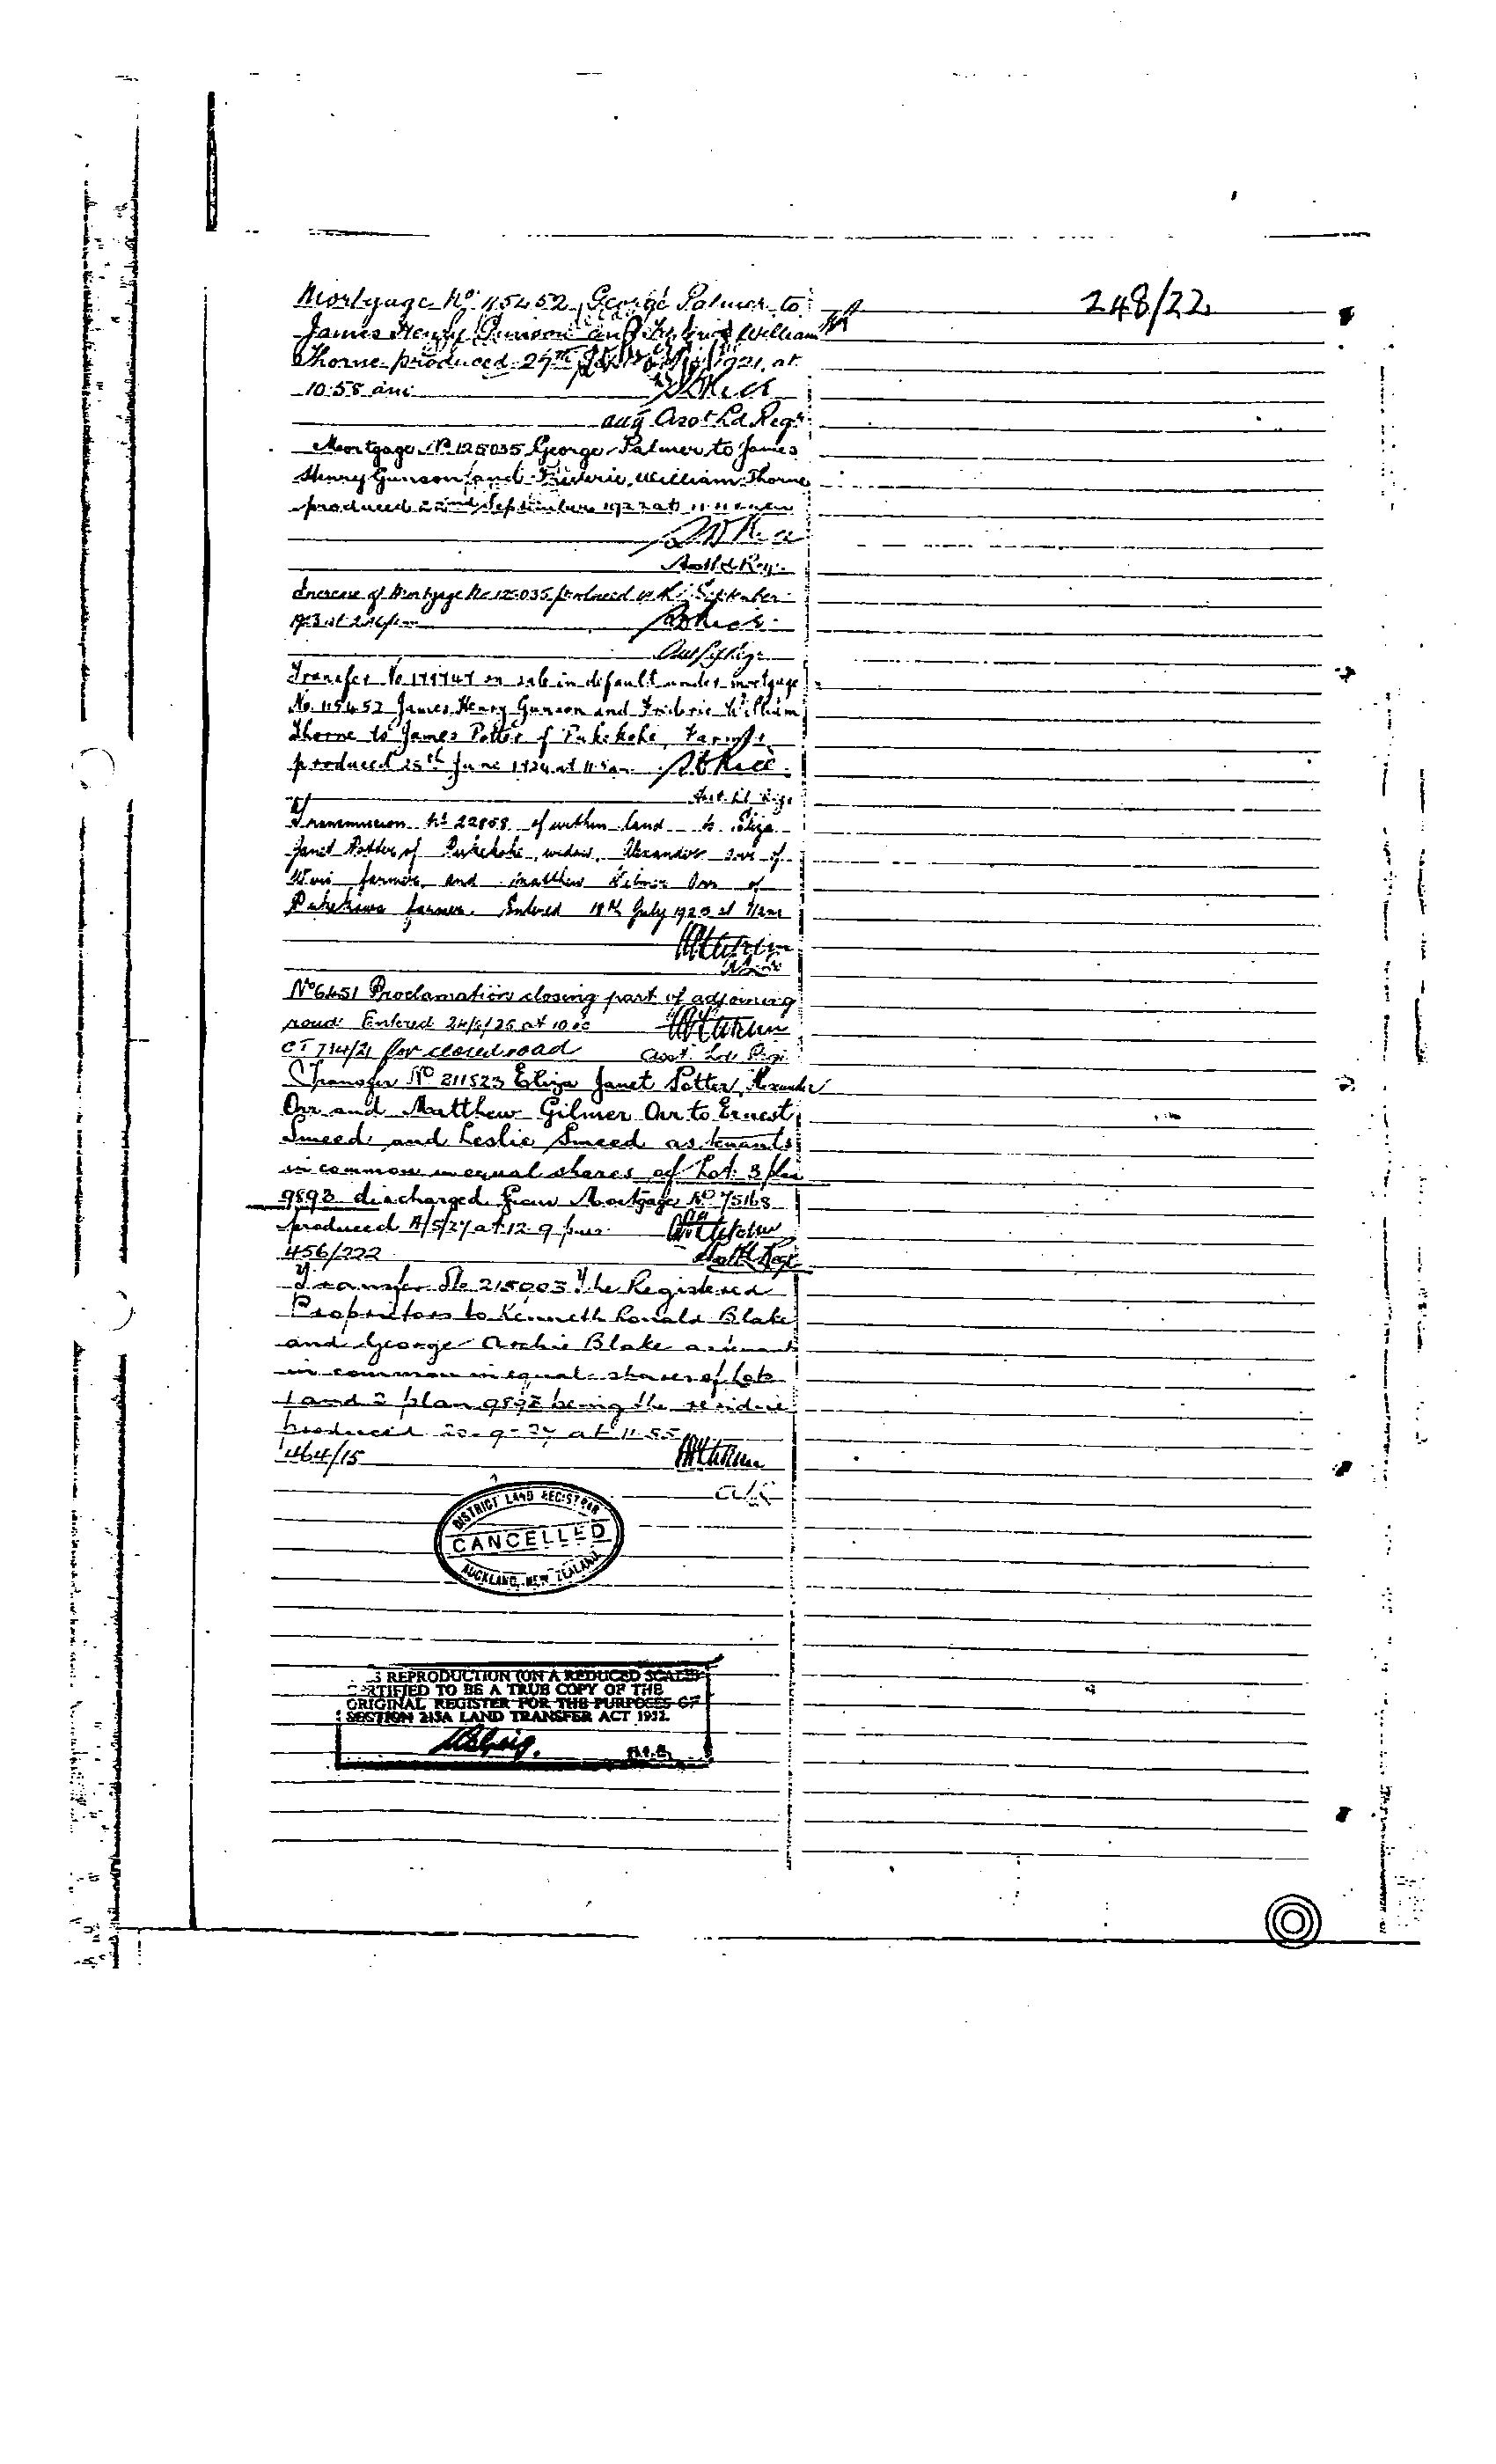 248/22
Mortgage No 115452 George Palmer to
James Henry Gunson and William
Thorne produced 29th 1921 at
10.58 am
Asst Ld Regr
Mortgage No 125035 George Palmer to James
Henry Gunson and Frederic William Thorne
produced 22nd September 1922 at
Asst Ld Regr
Increase of Mortgage No 125035 produced September
1923 at
Transfer No on sale in default under mortgage
No. 115452 James Henry Gunson and Frederic William
Thorne to James Potter of Pukekohe, Farmer
produced 25th June 1924 at
Asst Ld Regr
Transmission No 22858 of within land to Eliza
Janet Potter of Pukekohe, widow, Alexander Orr of
farmer and Matthew Gilmer Orr of
farmer. Entered July at
No 6451 Proclamation closing part of adjoining
road Entered at
CT 714/21 for closed road
Asst. Ld. Regr
Transfer No 211523 Eliza Janet Potter, Alexander
Orr and Matthew Gilmer Orr to Ernest
Smeed and Leslie Smeed as tenants
in common in equal shares of Lot 3 plan
9893 discharged from Mortgage No 75168
produced /5/27 at 12.9 pm.
456/222
Transfer No 215003 The Registered
Proprietors to Kenneth Ronald Blake
and George Archie Blake as tenants
in common in equal shares of Lots
1 and 2 plan being the residue
produced 20-9-27 at 11.55
464/15
ALR
DISTRICT LAND REGISTRAR
CANCELLED
AUCKLAND, NEW ZEALAND.
REPRODUCTION (ON A REDUCED SCALE)
CERTIFIED TO BE A TRUE COPY OF THE
ORIGINAL REGISTER FOR THE PURPOSES OF
SECTION 215A LAND TRANSFER ACT 1952.